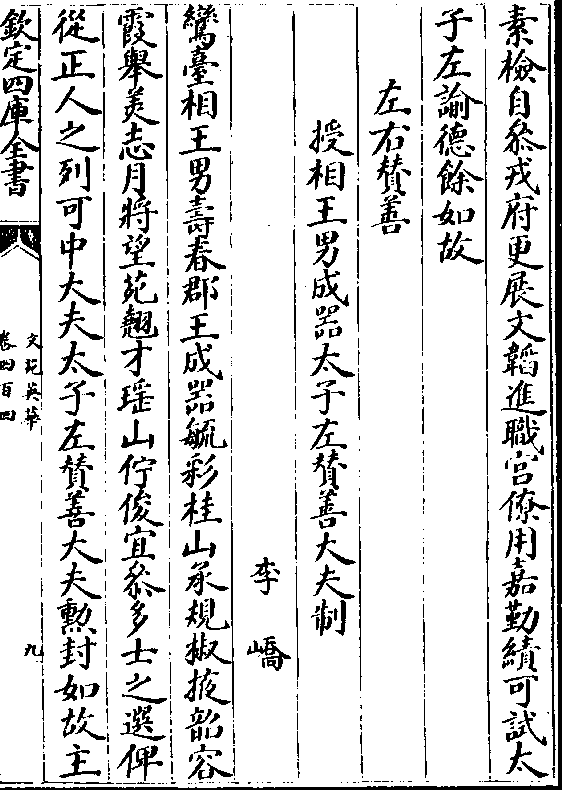 素檢自叅戎府更展文韜進職宫僚用嘉勤績可試太
子左諭德餘如故
左右賛善
授相王男成器太子左賛善大夫制
李嶠
鸞臺相王男壽春郡王成器毓彩桂山承規椒掖韶容
霞舉美志月將望苑翹才瑶山佇俊宜叅多士之選俾
從正人之列可中大夫太子左賛善大夫勲封如故主
欽定四庫全書
文苑英華
卷四百四
九